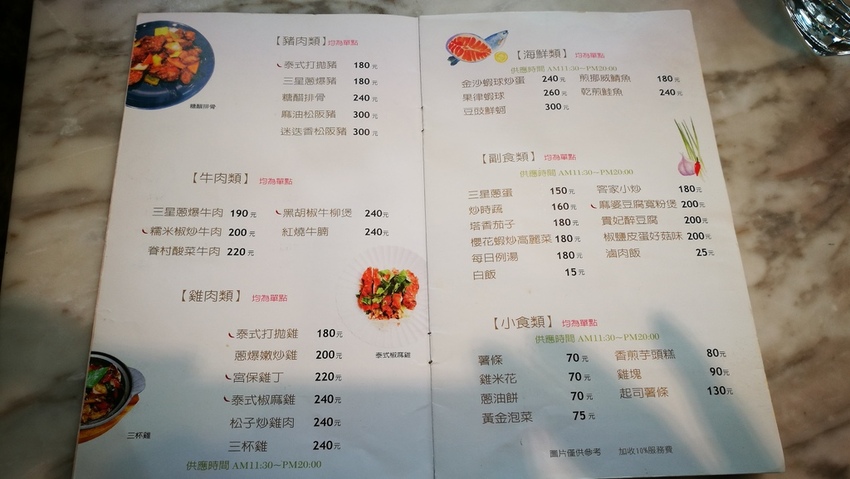 【豬肉類】均為單點
泰式打拋豬 180元
三星蔥爆豬 180元
糖醋排骨 240元
麻油松阪豬 300元
迷迭香松阪豬 300元
糖醋排骨
【牛肉類】均為單點
三星蔥爆牛肉 190元
黑胡椒牛柳煲 240元
糯米椒炒牛肉 200元
紅燒牛腩 240元
眷村酸菜牛肉 220元
【雞肉類】均為單點
泰式打拋雞 180元
蔥爆嫩炒雞 200元
宮保雞丁 220元
泰式椒麻雞 240元
松子炒雞肉 240元
三杯雞 240元
供應時間 AM11:30~PM20:00
泰式椒麻雞
三杯雞
【海鮮類】均為單點
供應時間 AM11:30~PM20:00
金沙蝦球炒蛋 240元
煎挪威鯖魚 180元
果律蝦球 260元
乾煎鮭魚 240元
豆豉鮮蚵 300元
【副食類】均為單點
供應時間 AM11:30~PM20:00
三星蔥蛋 150元
客家小炒 180元
炒時蔬 160元
麻婆豆腐寬粉煲 200元
塔香茄子 180元
貴妃醉豆腐 200元
櫻花蝦炒高麗菜 180元
椒鹽皮蛋好菇味 200元
每日例湯 180元
滷肉飯 25元
白飯 15元
【小食類】均為單點
供應時間 AM11:30~PM20:00
薯條 70元
香煎芋頭糕 80元
雞米花 70元
雞塊 90元
蔥油餅 70元
起司薯條 130元
黃金泡菜 75元
圖片僅供參考 加收10%服務費